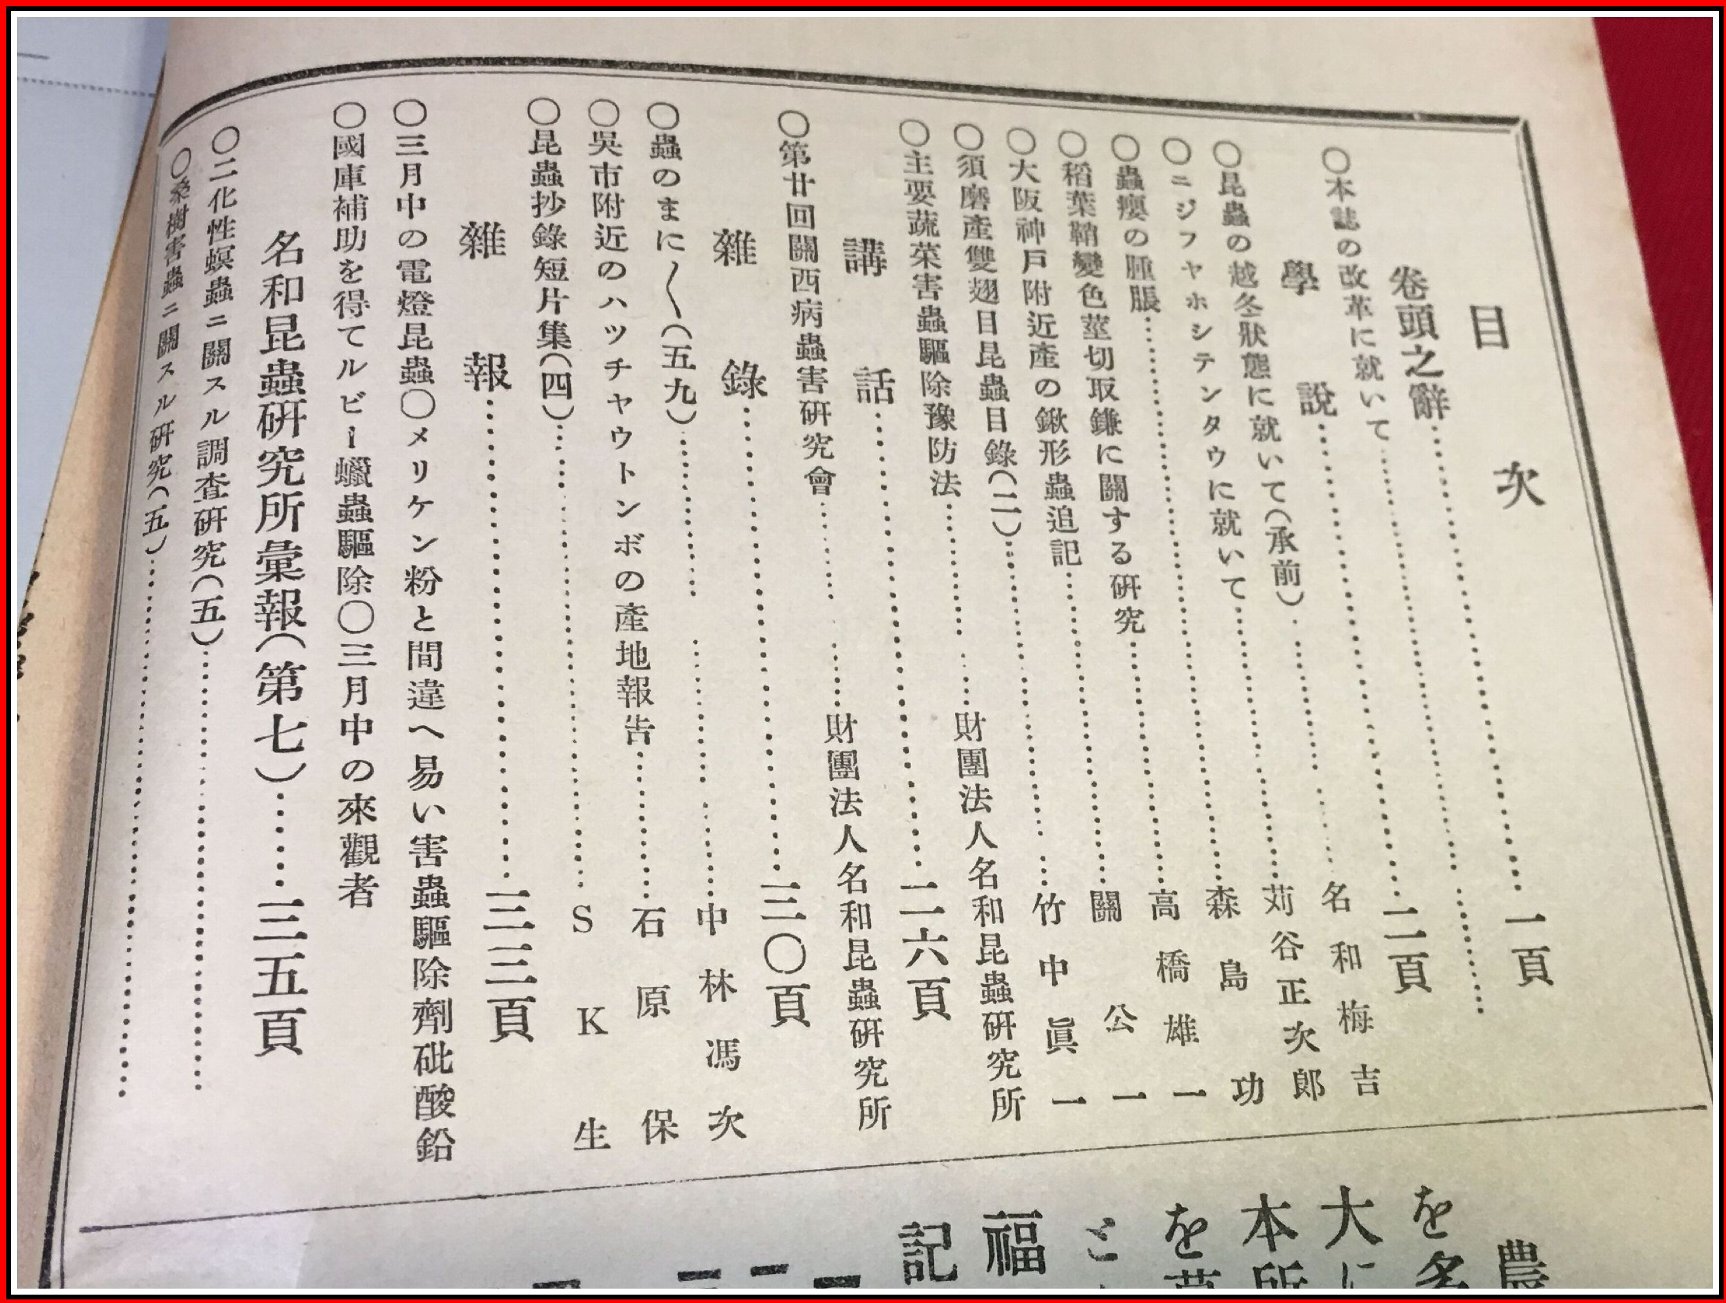 目次
卷頭之辭……一頁
○本誌の改革に就いて……名和梅吉
學說……二頁
○昆蟲の越冬狀態に就いて(承前)……苅谷正次郎
○ニジフヤホシテンタウに就いて……森島功
○蟲癭の腫脹……高橋雄一
○稻葉鞘變色莖切取鎌に關する硏究……關公一
○大阪神戶附近產の鍬形蟲追記……竹中眞一
○須磨產雙翅目昆蟲目錄(二)……財團法人名和昆蟲硏究所
○主要蔬菜害蟲驅除豫防法……財團法人名和昆蟲硏究所
講話……二六頁
○第廿回關西病蟲害硏究會……
雜錄……三〇頁
○蟲のまに〱(五九)……中林馮次
○吳市附近のハツチヤウトンボの產地報告……石原保
○昆蟲抄錄短片集(四)……SK生
雜報……三三頁
○三月中の電燈昆蟲○メリケン粉と間違へ易い害蟲驅除劑砒酸鉛
○國庫補助を得てルビー蠟蟲驅除○三月中の來觀者
名和昆蟲硏究所彙報(第七)……三五頁
○二化性螟蟲ニ關スル調査硏究(五)……
○桑樹害蟲ニ關スル硏究(五)……
農
を名
大に
本所
を
と
福
記